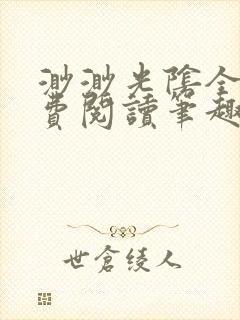 渺渺光陰全
費閱讀筆趣
世倉綾人